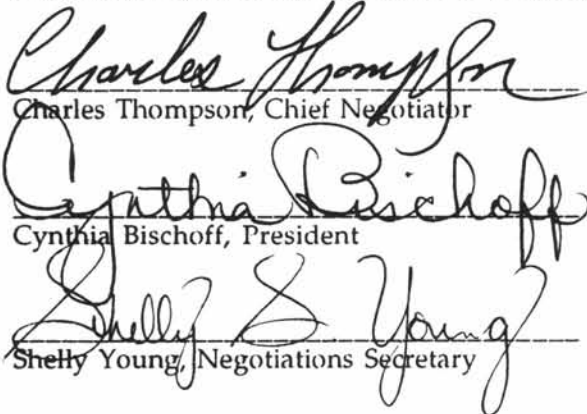 Charles Thompson
Charles Thompson, Chief Negotiator
Cynthia Bischoff
Cynthia Bischoff, President
Shelly S Young
Shelly Young, Negotiations Secretary